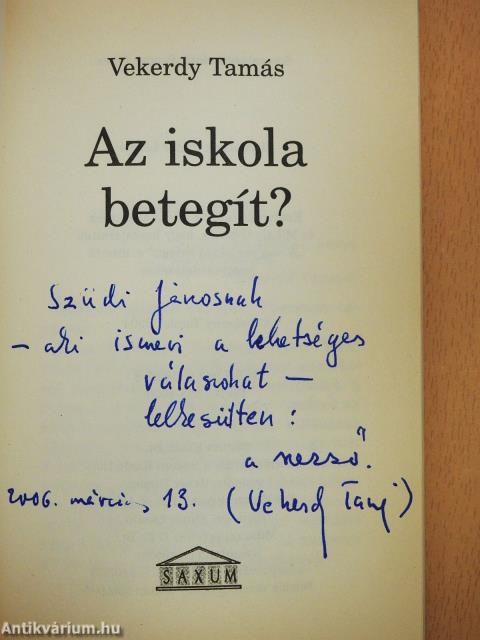 Vekerdy Tamás
Az iskola
betegít?
Szüdi Jánosnak
– aki ismeri a lehetséges
válaszokat –
lelkesülten:
a
2006. március 13. (Vekerdy Tamás)
SAXUM
Antikvárium.hu